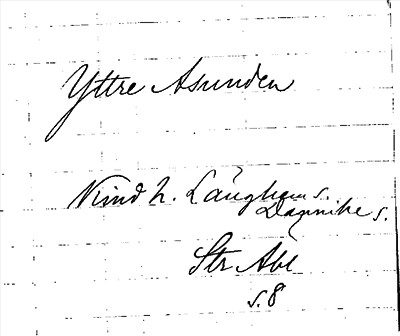 Yttre Åsunden
Kind h. Länghems s.
Dannike s.
Str Abl
s. 8